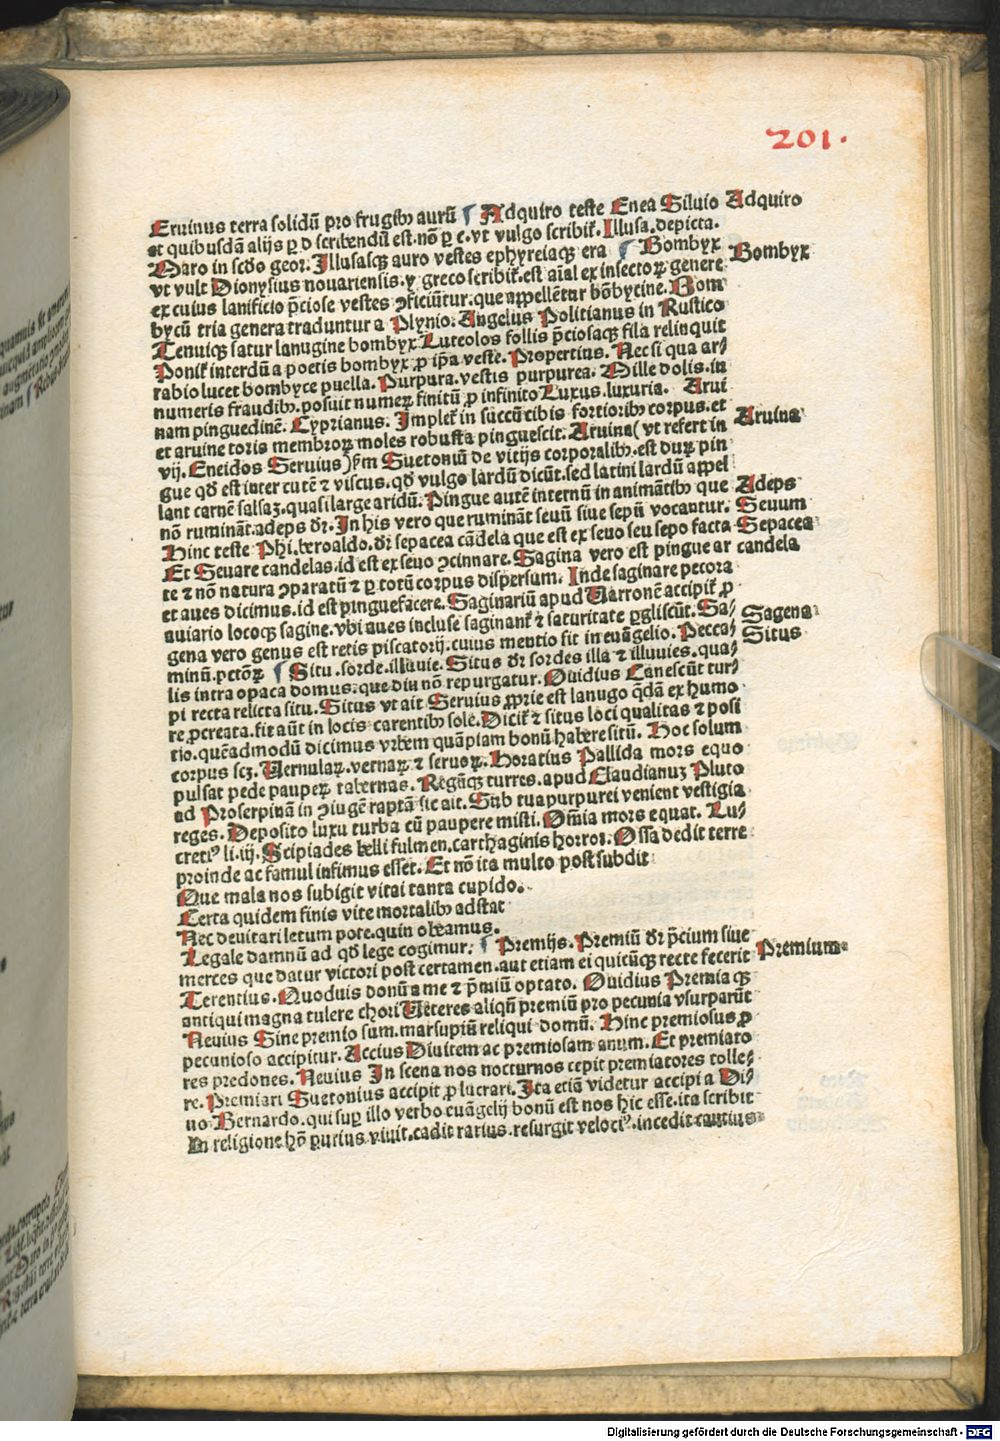 201.
Eruinus terra solidū pro frugibꝰ aurū ¶ Adquiro teste Enea Siluio Adquiro
et quibusdā alijs ꝑ d scribendū est. nō ꝑ c. vt vulgo scribiť. Illusa. depicta.
Maro in scďo geor. Illusasqꝫ auro vestes ephyreiaqꝫ era ¶ Bombyx Bombyx
vt vult Dionysius nouariensis. y greco scribiť. est aīal ex insectoꝝ genere
ex cuius lanificio p̄ciose vestes ꝯficiūtur. que appellētur bōbycine. Bom
bycū tria genera traduntur a Plynio. Angelus Politianus in Rustico
Tenuiqꝫ satur lanugine bombyx Luteolos follis p̄ciosaqꝫ fila relinquit
Poniť interdū a poetis bombyx ꝓ ip̄a veste. Propertius. Nec si qua ar⸗
rabio lucet bombyce puella. Purpura. vestis purpurea. Mille dolis. in
numeris fraudibꝰ. posuit numeꝝ finitū ꝓ infinito Luxus. luxuria. Arui
nam pinguedinē. Cyprianus. Impleť in succū cibis fortioribꝰ corpus. et Aruina
et aruine toris membroꝝ moles robusta pinguescit. Aruina (vt refert in
vij. Eneidos Seruius) ẜm Suetoniū de vitijs corporalibꝰ. est duꝝ pin
gue qď est inter cutē ⁊ viscus. qď vulgo lardū dicūt. sed latini lardū appel
lant carnē salsaꝫ. quasi large aridū. Pingue autē internū in animātibꝰ que Adeps
nō ruminā̄t. adeps ďr. In his vero que ruminā̄t seuū siue sepū vocantur. Seuum
Hinc teste Phi. beroaldo. ďr sepacea cādela que est ex seuo seu sepo facta Sepacea
Et Seuare candelas. id est ex seuo ꝯcinnare. Sagina vero est pingue ar candela
te ⁊ nō natura ꝯparatū ⁊ ꝑ totū corpus dispersum. Inde saginare pecora
et aues dicimus. id est pinguefacere. Saginariū apud Uarronē accipiť ꝓ
auiario locoqꝫ sagine. vbi aues incluse saginanť ⁊ saturitate ꝑgliscūt. Sa⸗ Sagena
gena vero genus est retis piscatorij. cuius mentio fit in euāgelio. Pecca⸗ Situs
minū. pctōꝝ ¶ Situ. sorde. illuuie. Situs ďr sordes illa ⁊ illuuies. qua⸗
lis intra opaca domus. que diu nō repurgatur. Ouidius Canescūt tur⸗
pi recta relicta situ. Situs vt ait Seruius ꝓprie est lanugo q̄dā ex humo
re ꝓcreata. fit aūt in locis carentibꝰ sole. Diciť ⁊ situs loci qualitas ⁊ posi
tio. quēadmodū dicimus vrbem quāpiam bonū habere sitū. Hoc solum
corpus scꝫ. Uernulaꝝ. vernaꝝ ⁊ seruoꝝ. Horatius Pallida mors equo
pulsat pede pauperꝝ tabernas. Regūqꝫ turres. apud Claudianuꝫ Pluto
ad Proserpinā in ꝯiugē raptā sic ait. Sub tua purpurei venient vestigia
reges. Deposito luxu turba cū paupere misti. Om̄ia mors equat. Lu⸗
cretiꝰ li. iij. Scipiades belli fulmen. carthaginis horror. Ossa dedit terre
proinde ac famul infimus esset. Et nō ita multo post subdit
Que mala nos subigit vitai tanta cupido.
Certa quidem finis vite mortalibꝰ adstat
Nec deuitari letum pote. quin obeamus.
Legale damnū ad qď lege cogimur. ¶ Premijs. Premiū ďr p̄cium siue
merces que datur victori post certamen. aut etiam ei quicūqꝫ recte fecerit Premium
Terentius. Quoduis donū a me ⁊ p̄miū optato. Ouidius Premiaqꝫ
antiqui magna tulere chori Ueteres aliqn̄ premiū pro pecunia vsurparūt
Neuius Sine premio sum. marsupiū reliqui domū. Hinc premiosus ꝓ
pecunioso accipitur. Accius Diuitem ac premiosam anum. Et premiato
res predones. Neuius In scena nos nocturnos cepit premiatores tolle⸗
re. Premiari Suetonius accipit ꝓ lucrari. Ita etiā videtur accipi a Di⸗
uo Bernardo. qui suꝑ illo verbo euāgelij bonū est nos hic esse. ita scribit
In religione hō purius viuit. cadit rarius. resurgit velociꝰ. incedit cautius
Digitalisierung gefördert durch die Deutsche Forschungsgemeinschaft - DFG